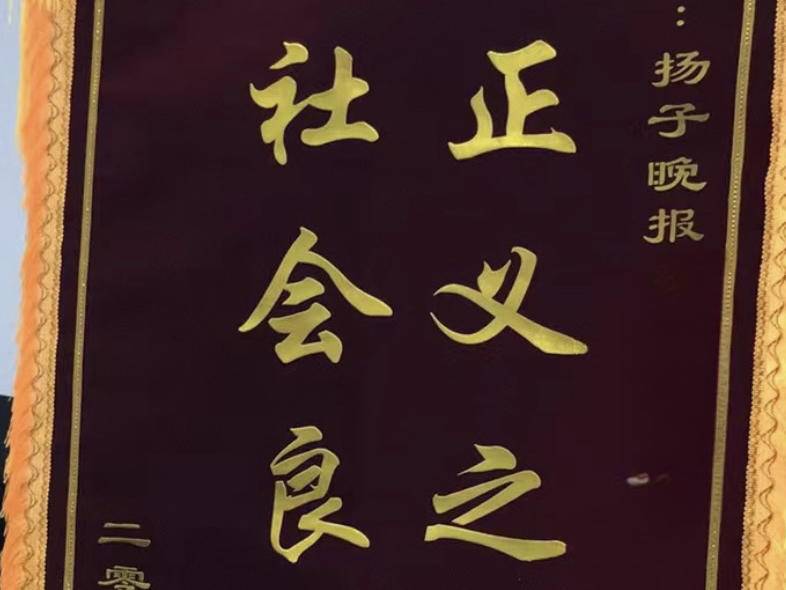 ：扬子晚报
正义之
社会良
二零